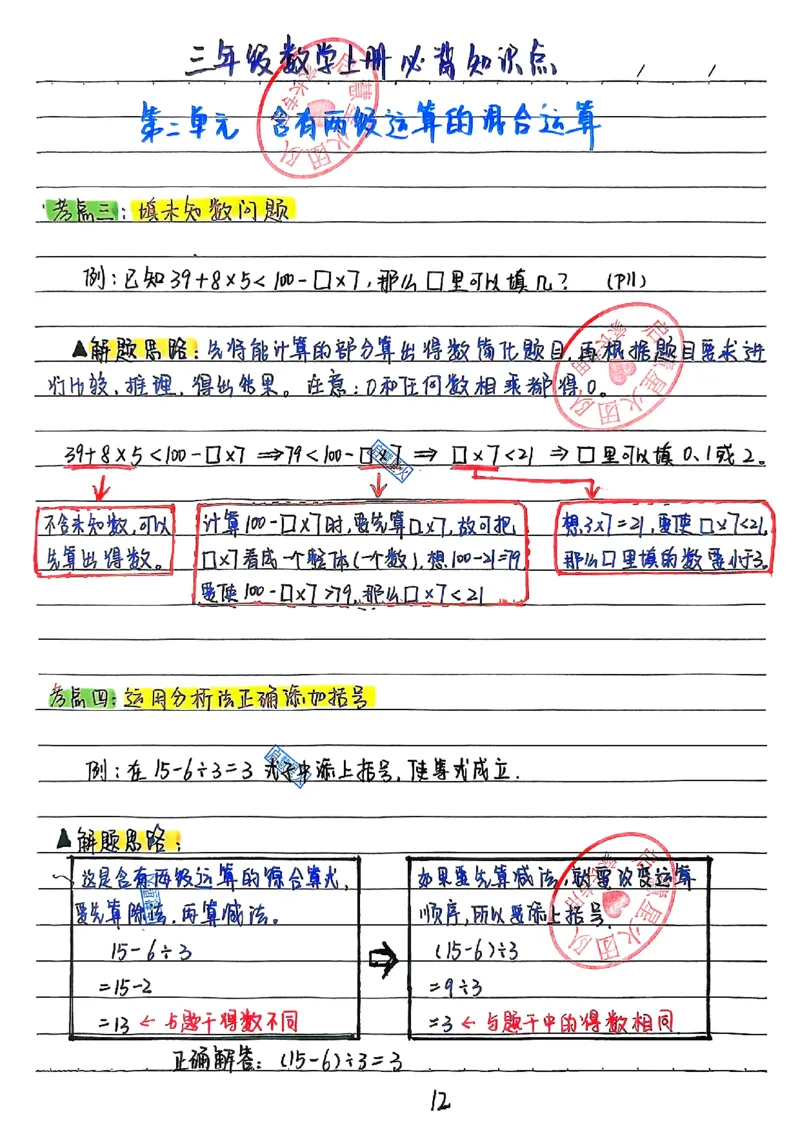 三年级数学上册必背知识点
第二单元 含有两级运算的混合运算
考点三：填未知数问题
例：已知39+8×5<100-□×7，那么□里可以填几？ (P11)
▲解题思路：先将能计算的部分算出得数简化题目，再根据题目要求进
行比较、推理，得出结果。注意：0和任何数相乘都得0。
39+8×5<100-□×7 ⇒79<100-□×7 ⇒ □×7<21 ⇒ □里可以填0、1或2。
不含未知数，可以
先算出得数。
计算100-□×7时，要先算□×7，故可把
□×7看成一个整体(一个数)，想100-21=79
要使100-□×7>79，那么□×7<21
想3×7=21，要使□×7<21，
那么□里填的数要小于3。
考点四：运用分析法正确添加括号
例：在15-6÷3=3 式子中添上括号，使等式成立.
▲解题思路：
这是含有两级运算的综合算式，
要先算除法，再算减法。
15-6÷3
=15-2
=13 ← 与题干得数不同
如果要先算减法，就要改变运算
顺序，所以要添上括号.
(15-6)÷3
=9÷3
=3 ← 与题干中的得数相同
正确解答：(15-6)÷3=3
12